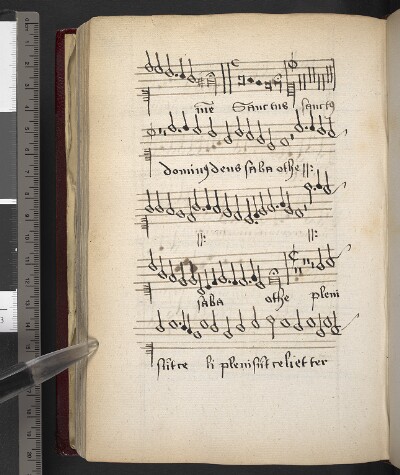 mē Sanctus sanctus
dominus deus saba othe
saba othe pleni
sūt ce li pleni sūt celi et ter